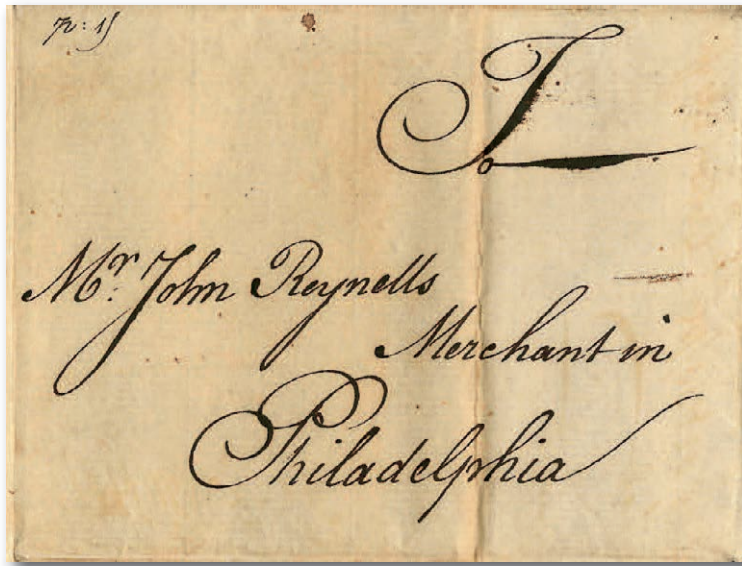 To
Mr: John Reynells
Merchant in
Philadelphia